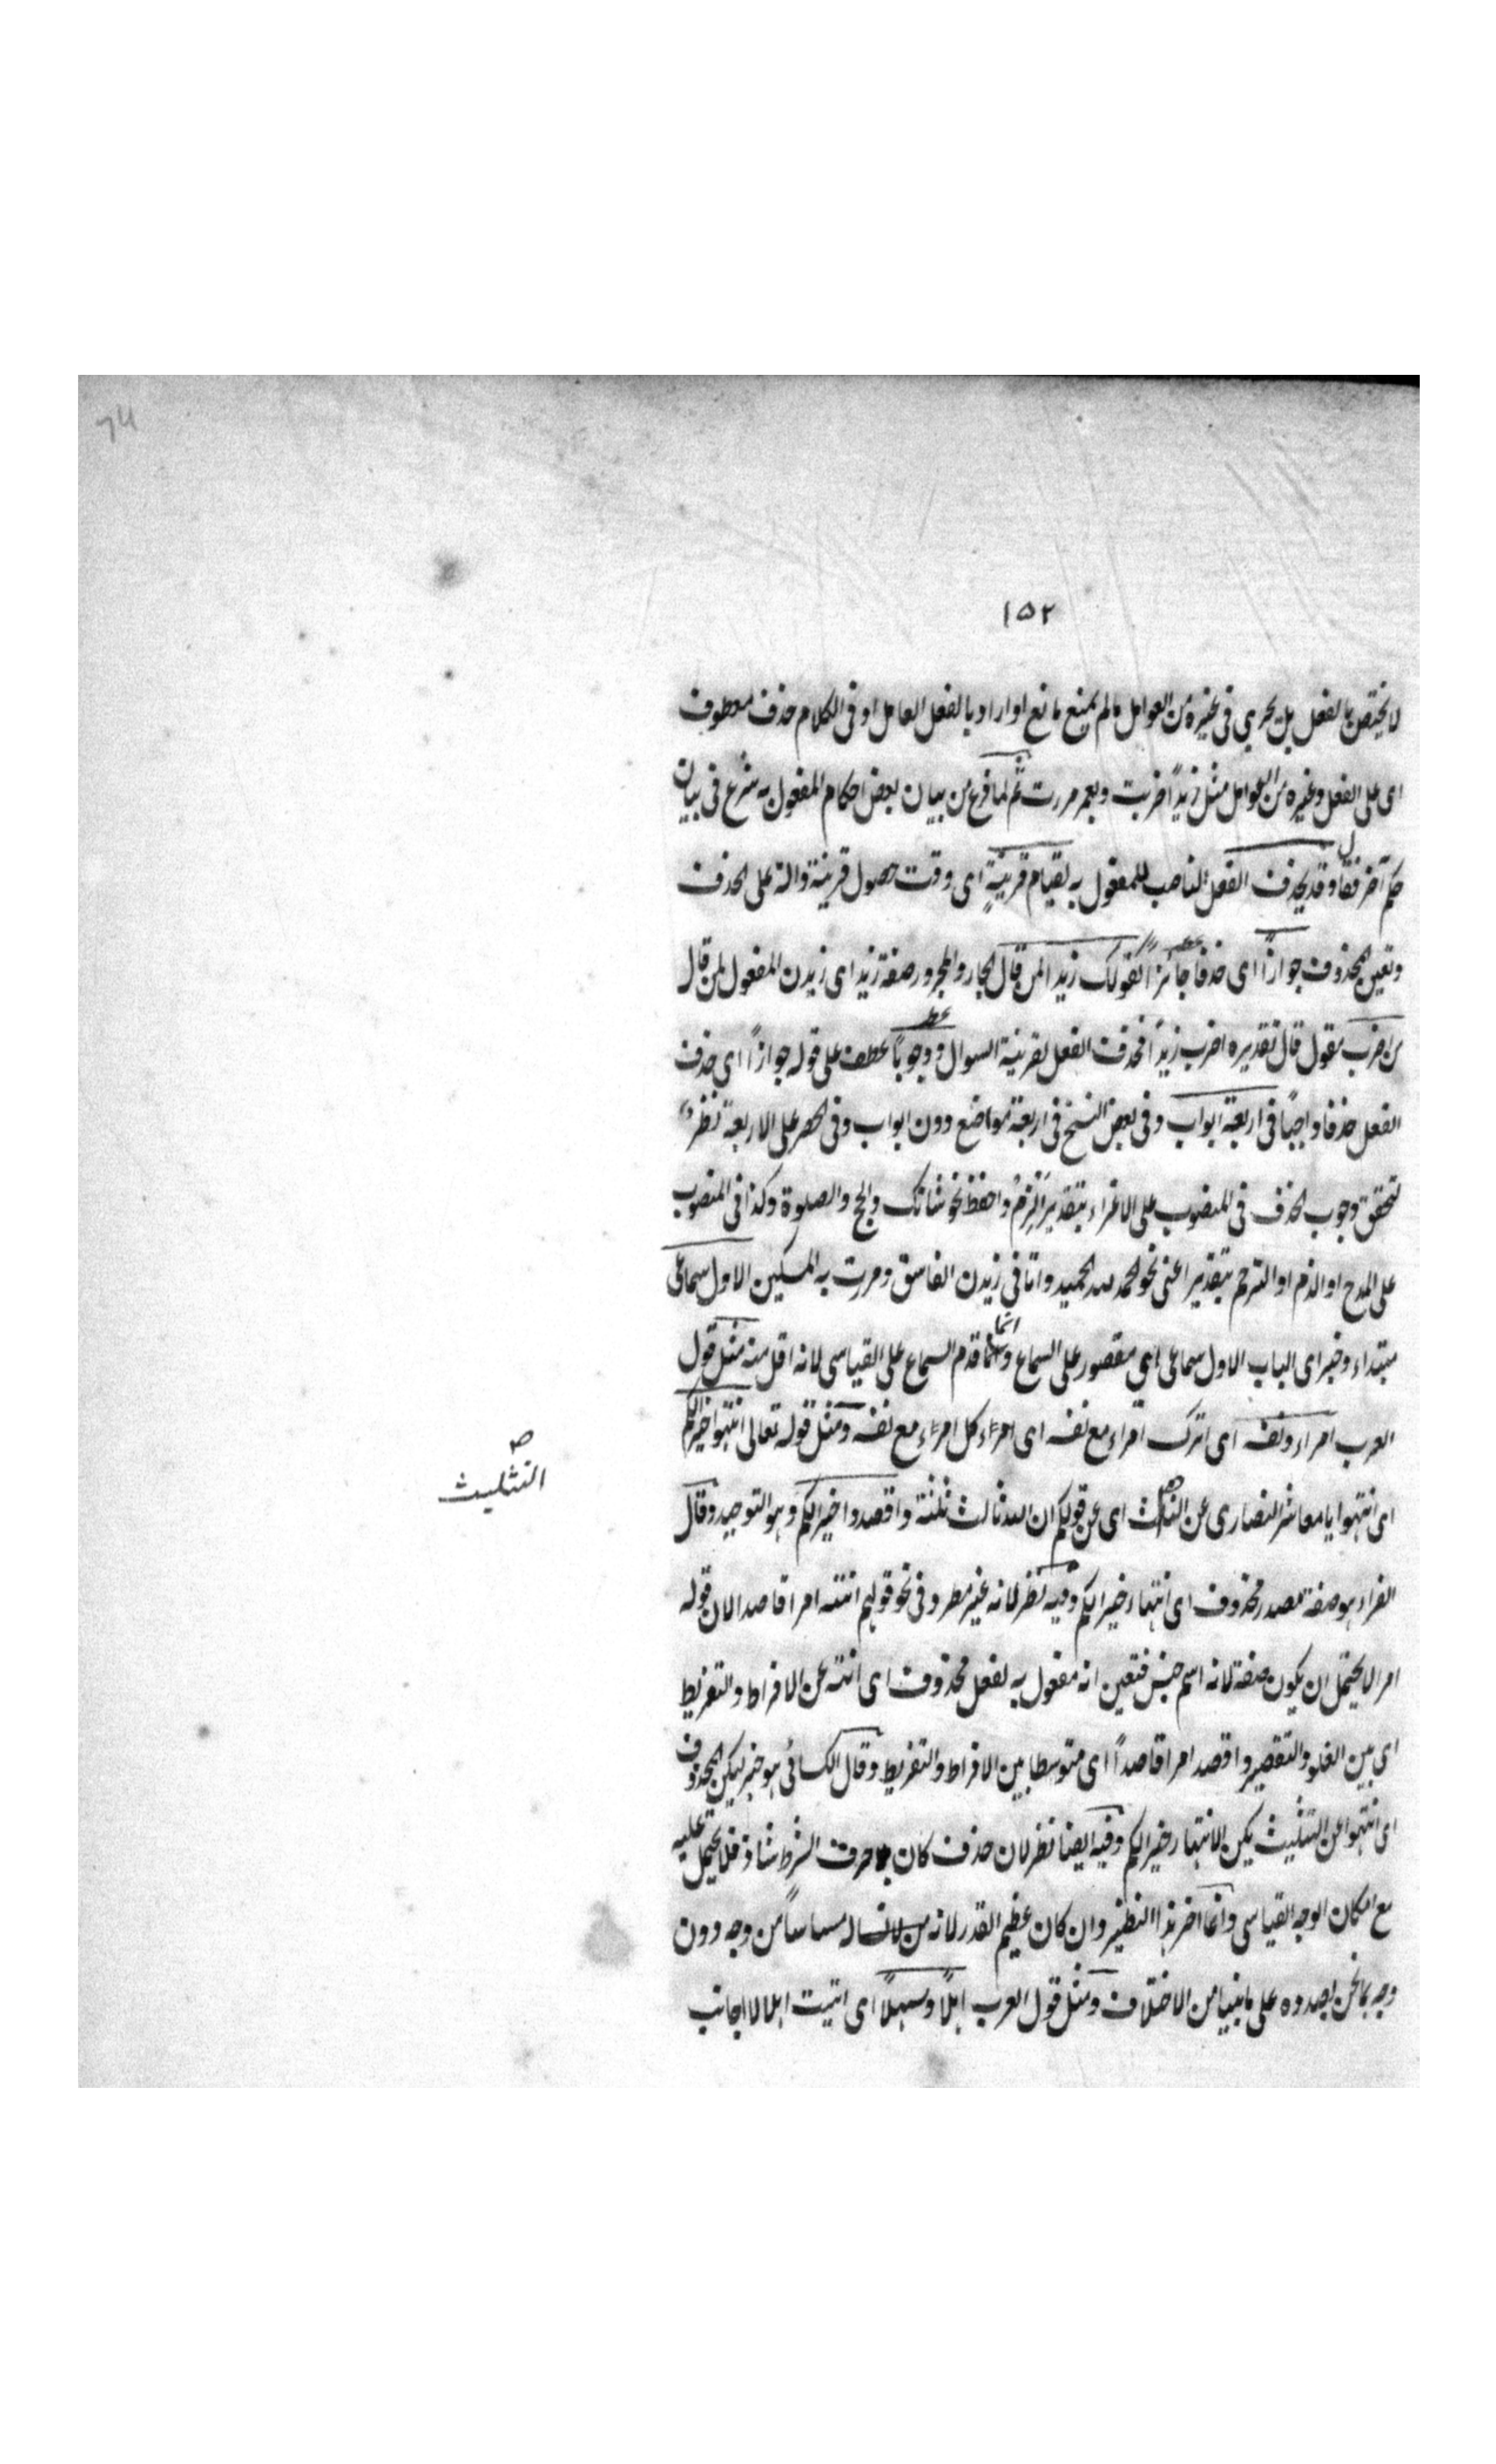 ١٥٢
لا يختص بالفعل بل يجري في غيره من العوامل ما لم يمنع مانع او اراد بالفعل العامل او في الكلام حذف معطوف
اى على الفعل وغيره من العوامل مثل زيدًا ضربت وبعمر مررت ثم لما فرغ من بيان بعض احكام المفعول به شرع فى بيان
حكم آخر فقال وقد يحذف الفعل الناصب للمفعول به لقيام قرينةٍ اى وقت حصول قرينة دالة على الحذف
وتعين المحذوف جوازًا اى حذفا جائزا كقولك زيدا لمن قال الجار والمجرور صفة زيد اى زيدن المقول لمن قال
من اضرب مقول قال تقديره اضرب زيدًا فحذف الفعل لقرينة السوال ووجوبًا عطف على قوله جوازًا اى حذف
الفعل حذفا واجبًا فى اربعة ابواب وفى بعض النسخ فى اربعة مواضع دون ابواب وفى الحصر على الاربعة نظرٌ
لتحقق وجوب الحذف فى المنصوب على الاغراء بتقدير الزم واحفظ نحو شانك والحج والصلوة وكذا فى المنصوب
على المدح او الذم او الترحم بتقدير اعنى نحو الحمد لله الحميد واتانى زيدن الفاسق ومررت به المسكين الاول سماعى
مبتداء وخبر اى الباب الاول سماعى اى مقصور على السماع وانما قدم السماع على القياسى لانه اقل منه مثل قول
العرب امراء ونفسه اى اترك امراء مع نفسه اى امراء كل امرء مع نفسه ومثل قوله تعالى انتهوا خيرا لكم
اى انتهوا يا معاشر النصارى عن الثالث اى عن قولكم ان الله ثالث ثلثة واقصدوا خيرا لكم وهو التوحيد وقال
التثليث
ص
الفراء هو صفة مصدر محذوف اى انتهاء خيرا لكم وفيه نظر لانه غير مطرد فى نحو قولهم انته امرا قاصدا لان قوله
امرا لا يحتمل ان يكون صفة لانه اسم جنس فتعين انه مفعول به لفعل محذوف اى انته عن الافراط والتفريط
اى بين الغلو والتقصير واقصد امرا قاصدًا اى متوسطا بين الافراط والتفريط وقال الكسائى هو خبر ليكن المحذوف
اى انتهوا عن التثليث يكن الانتهاء خيرا لكم وفيه ايضا نظر لان حذف كان بلا حرف الشرط شاذ فلا يحتمل عليه
مع امكان الوجه القياسى وانما اخر هذا النظير وان كان عظيم القدر لانه له مساسًا من وجه دون
وجه بما نحن بصدده على ما بينا من الاختلاف ومثل قول العرب اهلًا وسهلًا اى اتيت اهلا لا اجانب